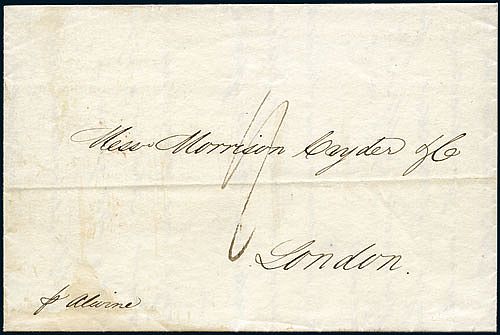 Messrs Morrison Cryder & Co
London.
p Alwine